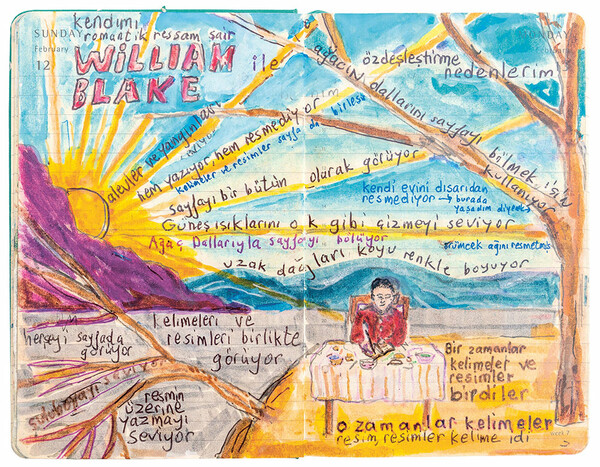 kendimi
romantik ressam şair
SUNDAY
February
12
WILLIAM
BLAKE
ile
özdeşleştirme
nedenlerim
SUNDAY
ağacın dallarını sayfayı bölmek için
kullanıyor
alevler ve yangınları
seviyor
hem yazıyor, hem resmediyor
kelimeler ve resimler sayfa da birleşir
sayfayı bir bütün olarak görüyor
kendi evini dışarıdan
resmediyor → burada
yaşadım diyerek
Güneş ışıklarını ok gibi çizmeyi seviyor
Ağaç Dallarıyla sayfayı bölüyor
örümcek ağını resmetmiş
uzak dağları koyu renkle boyuyor
herşeyi sayfada
görüyor
kelimeleri ve
resimleri birlikte
görüyor
resmin
üzerine
yazmayı
seviyor
Bir zamanlar
kelimeler ve
resimler
birdiler
o zamanlar kelimeler
resim, resimler kelime idi